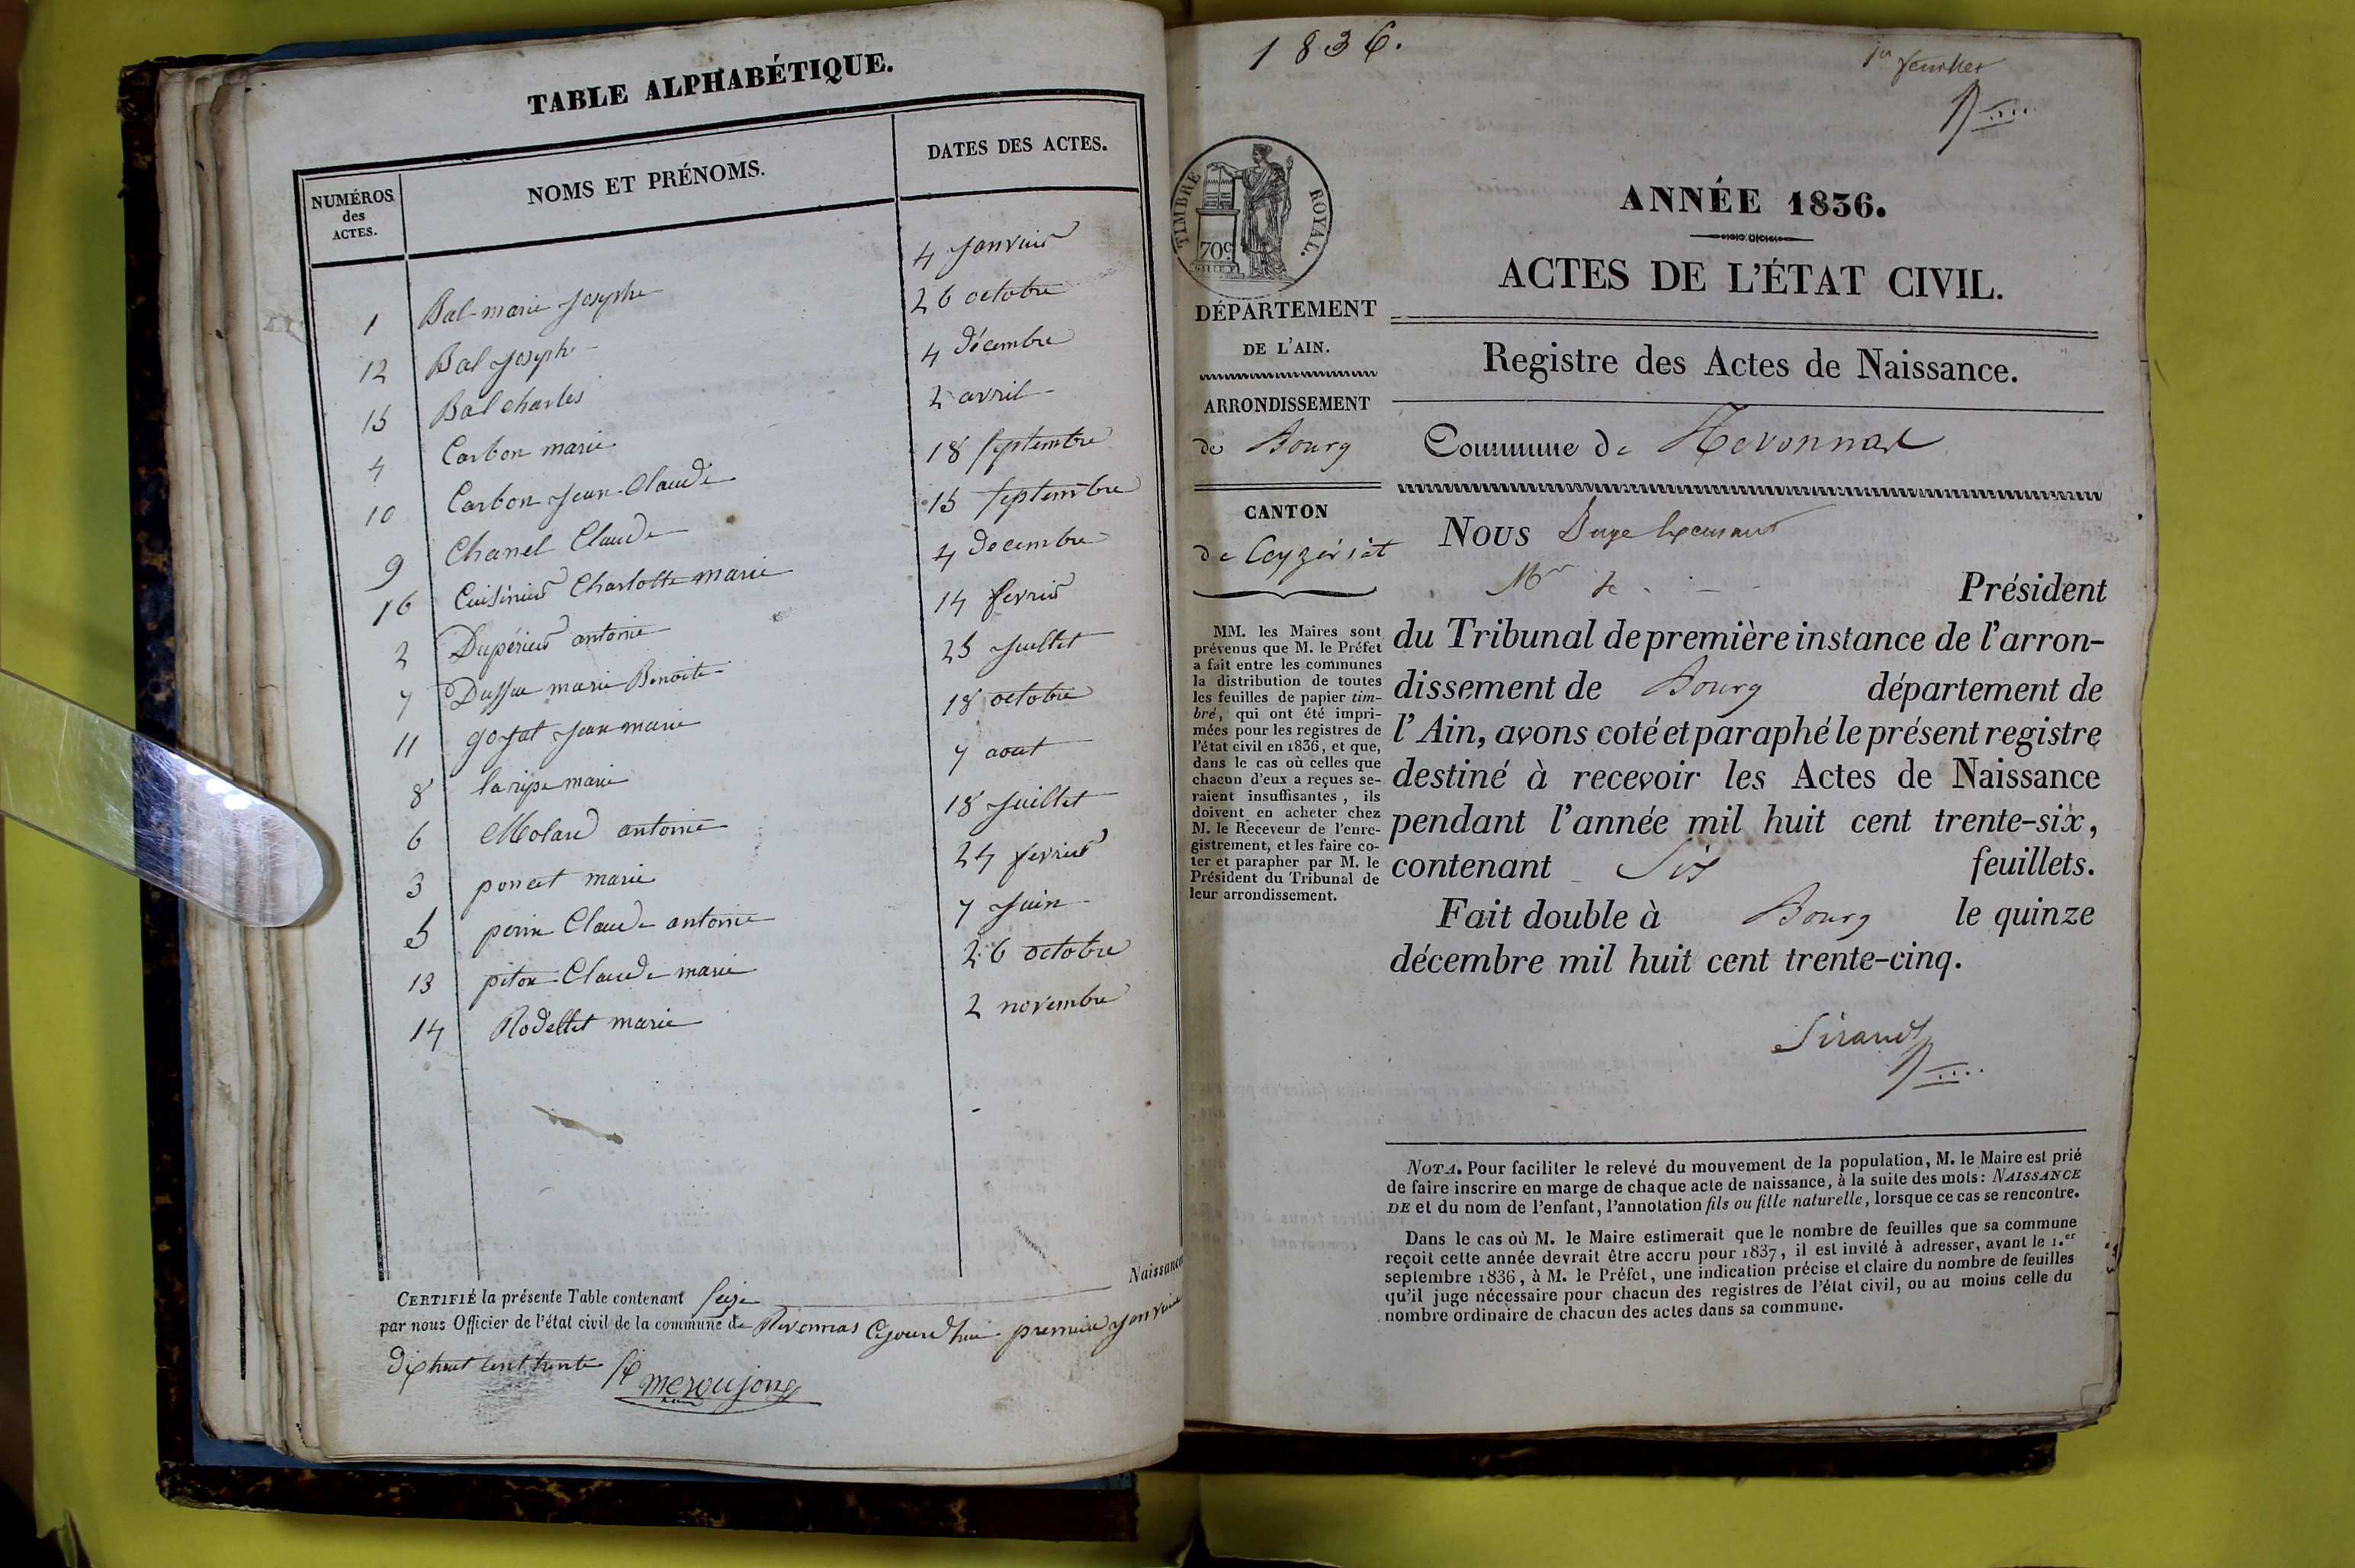 TABLE ALPHABÉTIQUE.
NUMÉROS des ACTES.
NOMS ET PRÉNOMS.
DATES DES ACTES.
1 Bal marie josephe 4 janvier
12 Bal joseph 26 octobre
15 Bal charles 4 décembre
4 Carbon marie 2 avril
10 Carbon jean Claude 18 septembre
9 Chanel Claude 15 septembre
16 Cuisinier Charlotte marie 4 decembre
2 Dupérier antoine 14 fevrier
7 marie Benoite 25 juillet
11 gojat jean marie 18 octobre
8 laripe marie 7 aout
6 Molard antoine 18 juillet
3 poncet marie 24 fevrier
5 perrin Claude antoine 7 juin
13 piton Claude marie 26 octobre
14 Rodettet marie 2 novembre
CERTIFIÉ la présente Table contenant seize Naissances
par nous Officier de l'état civil de la commune de Revonnas Cejourd'hui premier janvier
dix huit cent trente six
1836.
1er feuillet
TIMBRE ROYAL.
70c
DÉPARTEMENT
DE L'AIN.
ARRONDISSEMENT
de Bourg
CANTON
de Ceyzériat
MM. les Maires sont
prévenus que M. le Préfet
a fait entre les communes
la distribution de toutes
les feuilles de papier tim-
bré, qui ont été impri-
mées pour les registres de
l'état civil en 1836, et que,
dans le cas où celles que
chacun d'eux a reçues se-
raient insuffisantes, ils
doivent en acheter chez
M. le Receveur de l'enre-
gistrement, et les faire co-
ter et parapher par M. le
Président du Tribunal de
leur arrondissement.
ANNÉE 1836.
ACTES DE L'ÉTAT CIVIL.
Registre des Actes de Naissance.
Commune de Revonnas
Nous Juge
Mr le Président
du Tribunal de première instance de l'arron-
dissement de Bourg département de
l'Ain, avons coté et paraphé le présent registre
destiné à recevoir les Actes de Naissance
pendant l'année mil huit cent trente-six,
contenant Six feuillets.
Fait double à Bourg le quinze
décembre mil huit cent trente-cinq.
Sirand
NOTA. Pour faciliter le relevé du mouvement de la population, M. le Maire est prié
de faire inscrire en marge de chaque acte de naissance, à la suite des mots: NAISSANCE
DE et du nom de l'enfant, l'annotation fils ou fille naturelle, lorsque ce cas se rencontre.
Dans le cas où M. le Maire estimerait que le nombre de feuilles que sa commune
reçoit cette année devrait être accru pour 1837, il est invité à adresser, avant le 1.er
septembre 1836, à M. le Préfet, une indication précise et claire du nombre de feuilles
qu'il juge nécessaire pour chacun des registres de l'état civil, ou au moins celle du
nombre ordinaire de chacun des actes dans sa commune.